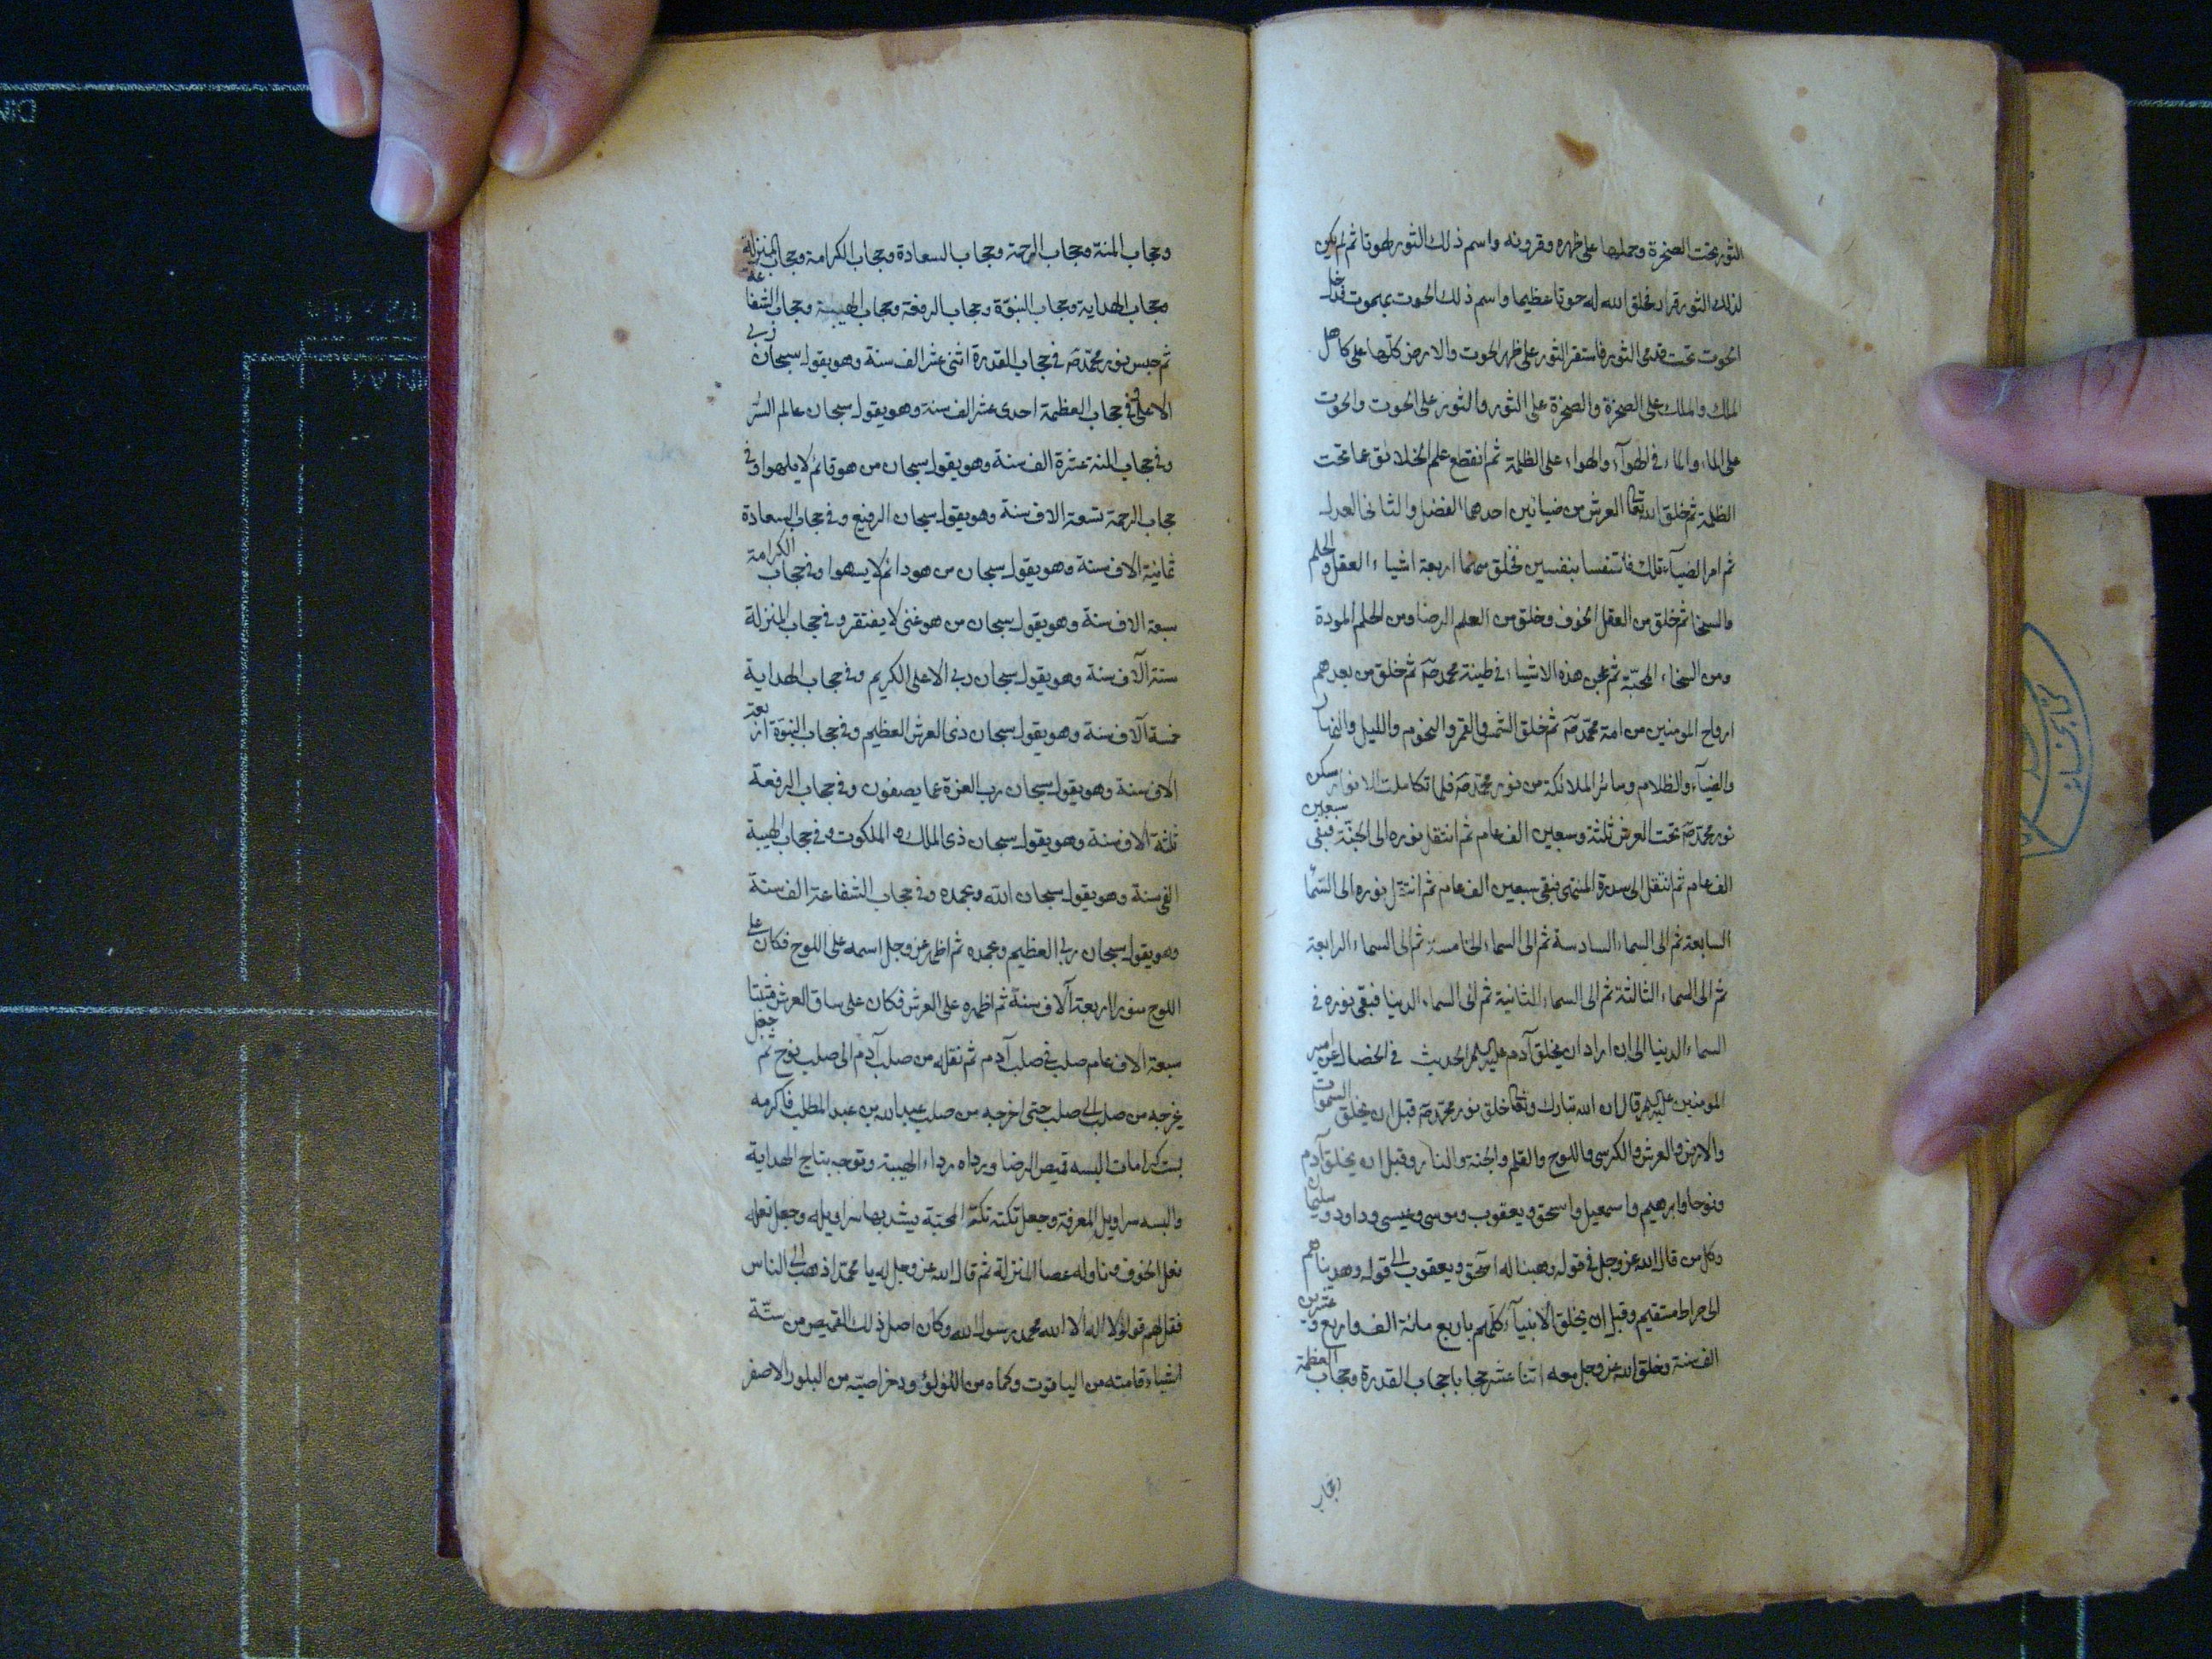 الثور تحت الصخرة وحملها على ظهره وقرونه واسم ذلك الثور لهوتا ثم لم يكن
لذلك الثور قرار فخلق الله له حوتا عظيما واسم ذلك الحوت بهموت فدخل
الحوت تحت قدمى الثور فاستقر الثور على ظهر الحوت والارض كلها على كاهل
الملك والملك على الصخرة والصخرة على الثور والثور على الحوت والحوت
على الماء والماء فى الهوآء والهواء على الظلمة ثم انقطع علم الخلائق عما تحت
الظلمة ثم خلق الله تعالى العرش من ضيائين احدهما الفضل والثانى العدل
ثم امر الضيآء تلك فانتفسا بنفسين فخلق منهما اربعة اشياء العقل والحلم
والسخا ثم خلق من العقل الخوف وخلق من العلم الرضا ومن الحلم المودة
ومن السخاء المحبّة ثم عجن هذه الاشياء فى طينة محمد صَ ثم خلق من بعدهم
ارواح المومنين من امة محمّد صَ ثم خلق الشمس والقمر والنجوم والليل والنهار
والضيآء والظلام وسائر الملائكة من نور محمّد صَ فلما تكاملت الانوار سكن
نور محمد صَ تحت العرش ثلثة وسبعين الف عام ثم انتقل نوره الى الجنّة فبقى سبعين
الف عام ثم انتقل الى سدرة المنتهى فبقى سبعين الف عام ثم انتقل نوره الى السّما
السابعة ثم الى السماء السادسة ثم الى السماء الخامسة ثم الى السماء الرابعة
ثم الى السماء الثالثة ثم الى السماء الثانية ثم الى السماء الدنيا فبقى نوره فى
السماء الدنيا الى ان اراد ان يخلق آدم عليه السلم الحديث فى الخصال عن امير
المومنين عليه السلم قال ان الله تبارك وتعالى خلق نور محمّد صَ قبل ان يخلق السموات
والارض والعرش والكرسى واللوح والقلم والجنة والنار وقبل ان يخلق آدم
ونوحا وابرهيم واسمعيل واسحق ويعقوب وموسى وعيسى وداود وسليمان
وكل من قال الله عز وجل فى قوله وهبنا له اسحق ويعقوب الى قوله وهديناهم
الى صراط مستقيم وقبل ان يخلق الانبيآء كلّهم باربع مائة الف واربع وعشرين
الف سنة وخلق الله عز وجل معه اثنا عشر حجابا حجاب القدرة وحجاب العظمة
وحجاب
وحجاب المنة وحجاب الرحمة وحجاب السعادة وحجاب الكرامة وحجاب المنزلة
وحجاب الهداية وحجاب النبوّة وحجاب الرفعة وحجاب الهيبة وحجاب الشفاعة
ثم حبس نور محمّد صَ فى حجاب القدرة اثنى عشر الف سنة وهو يقول سبحان ربى
الاعلى وفى حجاب العظمة احدى عشر الف سنة وهو يقول سبحان عالم السّر
وفى حجاب المنة عشرة الف سنة وهو يقول سبحان من هو قائم لا يلهوا وفى
حجاب الرحمة تسعة الاف سنة وهو يقول سبحان الرفيع وفى حجاب السعادة
ثمانية الاف سنة وهو يقول سبحان من هو دائم لا يسهوا وفى حجاب الكرامة
سبعة الاف سنة وهو يقول سبحان من هو غنى لا يفتقر وفى حجاب المنزلة
ستة آلاف سنة وهو يقول سبحان ربى الاعلى الكريم وفى حجاب الهداية
خمسة آلاف سنة وهو يقول سبحان ذى العرش العظيم وفى حجاب النبوّة اربعة
الاف سنة وهو يقول سبحان رب العزة عما يصفون وفى حجاب الرفعة
ثلثة الاف سنة وهو يقول سبحان ذى الملك والملكوت وفى حجاب الهيبة
الفى سنة وهو يقول سبحان الله وبحمده وفى حجاب الشفاعة الف سنة
وهو يقول سبحان ربى العظيم وبحمده ثم اظهر عز وجل اسمه على اللوح فكان على
اللوح منورا اربعة آلاف سنة ثم اظهره على العرش فكان على ساق العرش مثبتا
سبعة الاف عام صلب فى صلب آدم ثم نقله من صلب آدم الى صلب نوح ثم جعل
يخرجه من صلب الى صلب حتى اخرجه من صلب عبد الله بن عبد المطلب فاكرمه
بست كرامات البسه قميص الرضا ورداه رداء الهيبة وتوجه بتاج الهداية
والبسه سراويل المعرفة وجعل تكته تكّة المحبّة يشد بها سراويله وجعل نعله
نعل الخوف وناوله عصا المنزلة ثم قال الله عز وجل له يا محمّد اذهب الى الناس
فقل لهم قولوا لا اله الا الله محمد رسول الله وكان اصل ذلك القميص من ستّة
اشياء قامته من الياقوت وكماه من اللؤلؤ ودخراصيّه من البلور الاصفر